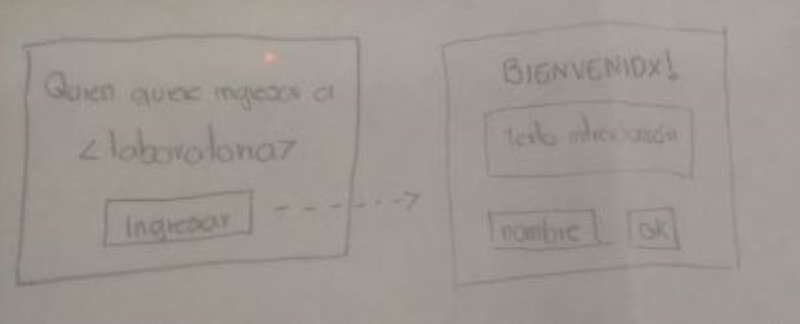 Quien quiere ingresar a
<laboratoria>
Ingresar
BIENVENIDX!
texto introducción
nombre
ok